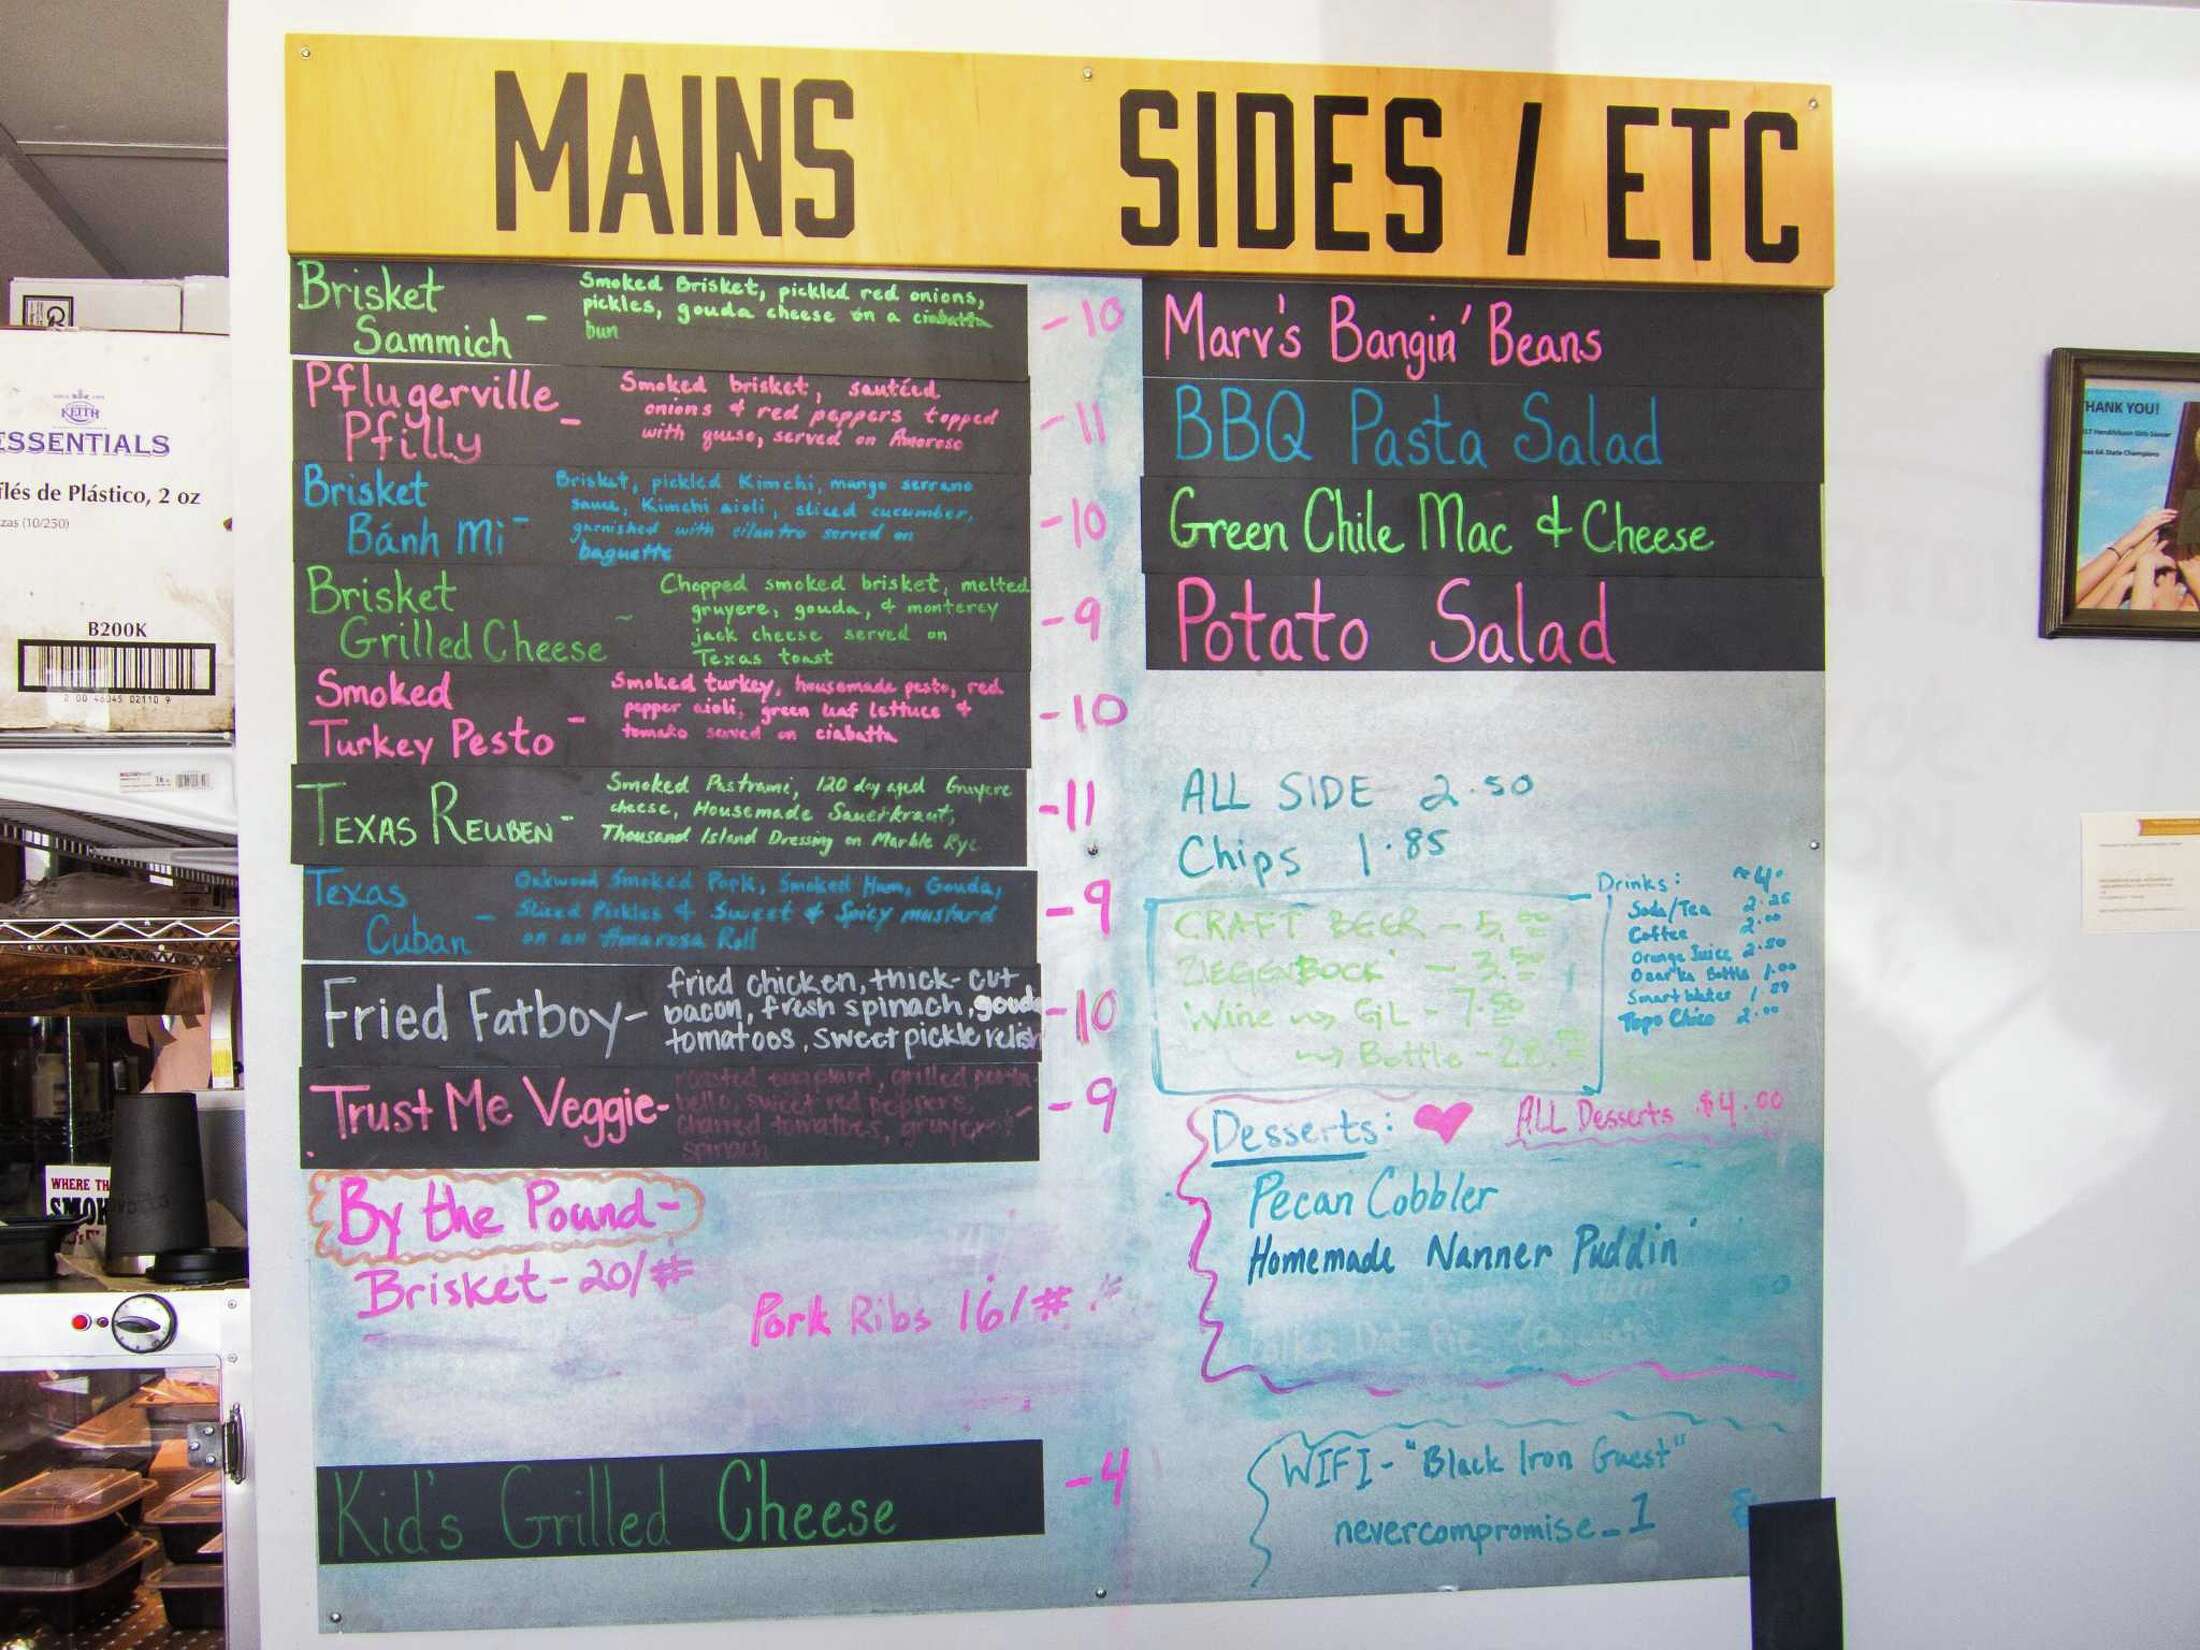 MAINS
SIDES / ETC
Brisket
Sammich -
Smoked Brisket, pickled red onions,
pickles, gouda cheese on a ciabatta
bun
-10
Pflugerville
Pfilly -
Smoked brisket, sautéed
onions & red peppers topped
with queso, served on Amoroso
-11
Brisket
Bánh Mi -
Brisket, pickled Kimchi, mango serrano
sauce, Kimchi aioli, sliced cucumber,
garnished with cilantro served on
baguette
-10
Brisket
Grilled Cheese -
Chopped smoked brisket, melted
gruyere, gouda, & monterey
jack cheese served on
Texas toast
-9
Smoked
Turkey Pesto -
Smoked turkey, housemade pesto, red
pepper aioli, green leaf lettuce &
tomato served on ciabatta
-10
TEXAS REUBEN -
Smoked Pastrami, 120 day aged Gruyere
cheese, Housemade Sauerkraut,
Thousand Island Dressing on Marble Rye
-11
Texas
Cuban -
Oakwood Smoked Pork, Smoked Ham, Gouda,
Sliced Pickles & Sweet & Spicy mustard
on an Amarosa Roll
-9
Fried Fatboy -
fried chicken, thick-cut
bacon, fresh spinach, gouda
tomatoes, sweet pickle relish
-10
Trust Me Veggie -
roasted eggplant, grilled porta-
bello, sweet red peppers,
charred tomatoes, gruyere
spinach
-9
By the Pound -
Brisket - 20/#
Pork Ribs 16/#
Kid's Grilled Cheese
-4
Marv's Bangin' Beans
BBQ Pasta Salad
Green Chile Mac & Cheese
Potato Salad
ALL SIDE 2.50
Chips 1.85
CRAFT BEER - 5.00
ZIEGENBOCK - 3.50
Wine GL - 7.50
Bottle - 28.
Drinks:
Soda/Tea 2.25
Coffee 2.00
Orange Juice 2.50
Ozarka Bottle 1.00
Smart Water 1.89
Topo Chico 2.00
Desserts: ♥ ALL Desserts $4.00
Pecan Cobbler
Homemade Nanner Puddin'
WIFI - "Black Iron Guest"
nevercompromise_1
KEITH
ESSENTIALS
flés de Plástico, 2 oz
zas (10/250)
B200K
2 00 46045 02110 9
WHERE TH
SMOK
THANK YOU!